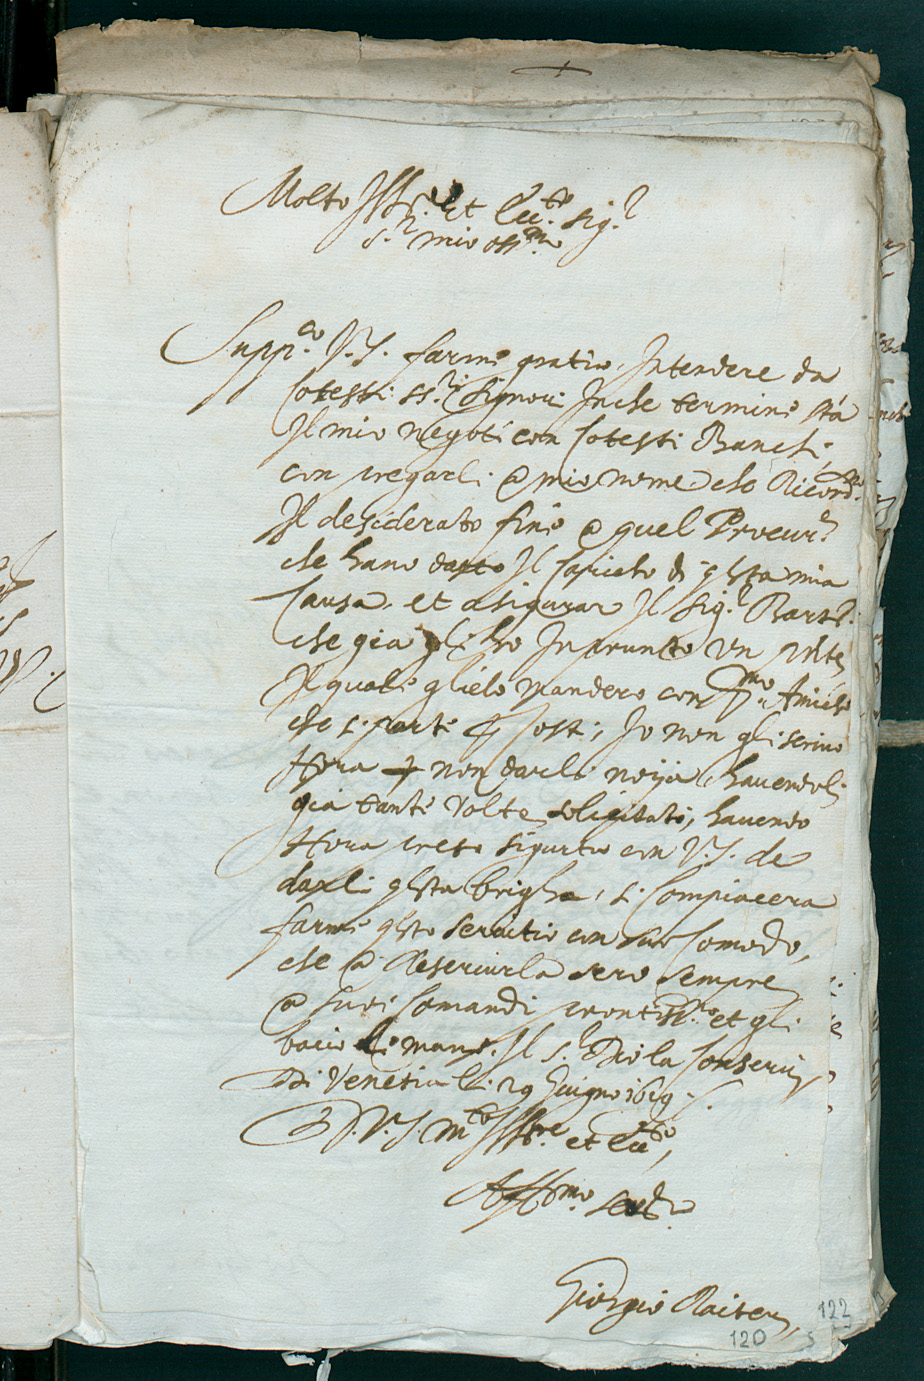 Molto Ill.re Et Ecc.te Sig.r
S.r mio oss.mo
Supp.co V.S. farmi gratia, Intendere da
Cotesti ss.ri Signori Inche termine stá
Il mio negoti con Cotesti Banchi,
con pregarli a mio nome che Ricord.no
Il desiderato fine a quel Procur.r
che hano dapto Il Caricho di q̃sta mia
Causa, et asigurar Il Sig.r Bart.
che gia gli ho In prunto un
Il quale glielo mandero con p.mo Amicho
che si parti p Costi, Io non gli scrivo
Hora p non darli noija havendoli
gia tante volte soligitati, havendo
Hora preso sigurtá con V.S. de
darli q̃sta brigha, si Compiacera
farmi q̃sto servitio con suo Comodo,
che a Reservirla sero sempre
a suoi Comandi prontiss.mo et gli
bacio le mani. Il S.r Dio la Conservi,
Di Venetia li 29 Giugno 1619
D.V.S. m.to Ill.re et Ecc.te,
Aff.mo ser.re
Giorgio Raiter
122
120